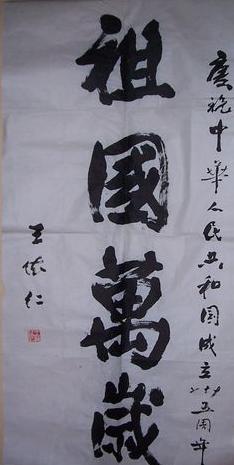 庆祝中华人民共和国成立六十五周年
祖國萬歲
王怀仁